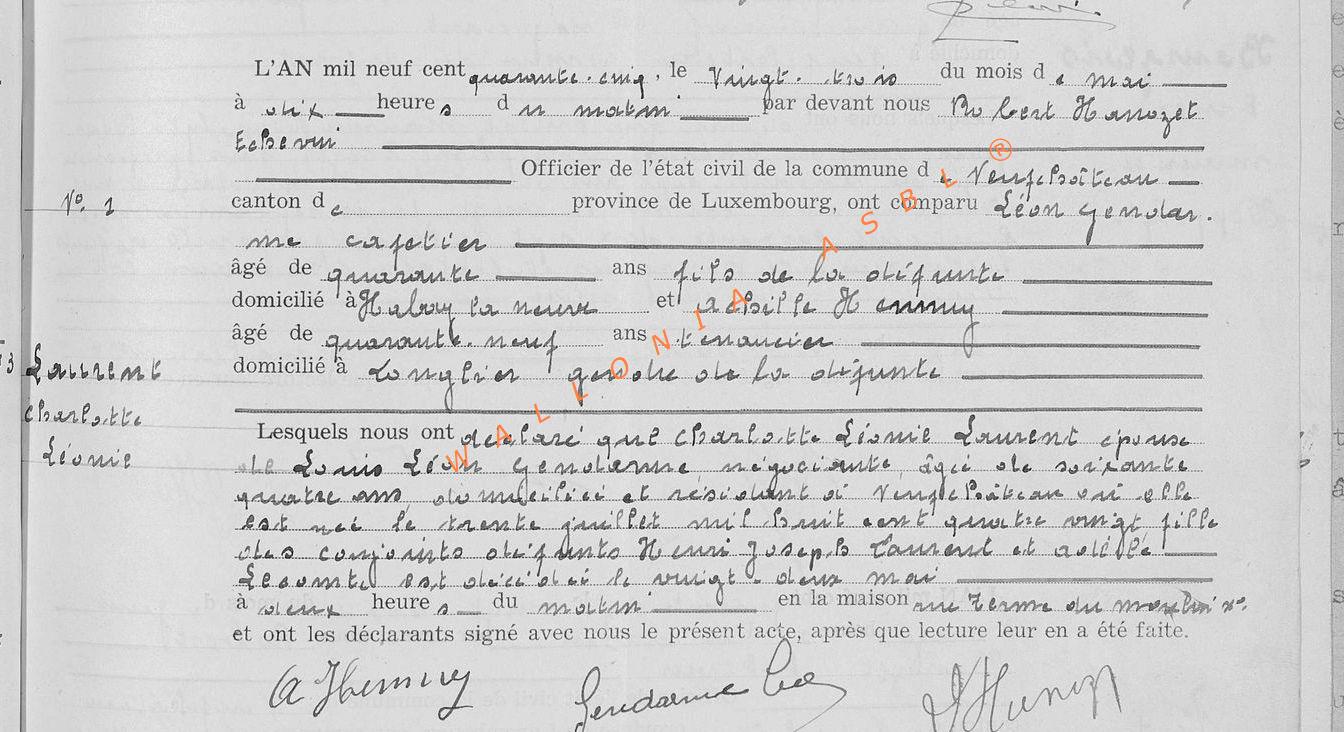 L'AN mil neuf cent quarante-cinq, le vingt-trois du mois de mai
à dix heures du matin par devant nous Robert Hanozet
Echevin
Officier de l'état civil de la commune de Neufchâteau
N°. 1
canton de province de Luxembourg, ont comparu Léon Gendar-
me cafetier
âgé de quarante ans fils de la défunte
domicilié à Habay la neuve et Achille Hennuy
âgé de quarante-neuf ans tenancier
domicilié à Longlier gendre de la défunte
Laurent
Charlotte
Léonie
Lesquels nous ont declaré que Charlotte Léonie Laurent épouse
de Louis Léon Gendarme négociante, âgée de soixante
quatre ans, domiciliée et résidant à Neufchâteau où elle
est née le trente juillet mil huit cent quatre vingt fille
des conjoints défunts Henri Joseph Laurent et Adèle
Lecomte est décédée le vingt-deux mai
à deux heures du matin en la maison rue Terme du
et ont les déclarants signé avec nous le présent acte, après que lecture leur en a été faite.
A Hennuy
Gendarme Léon
WALLONIA ASBL ®